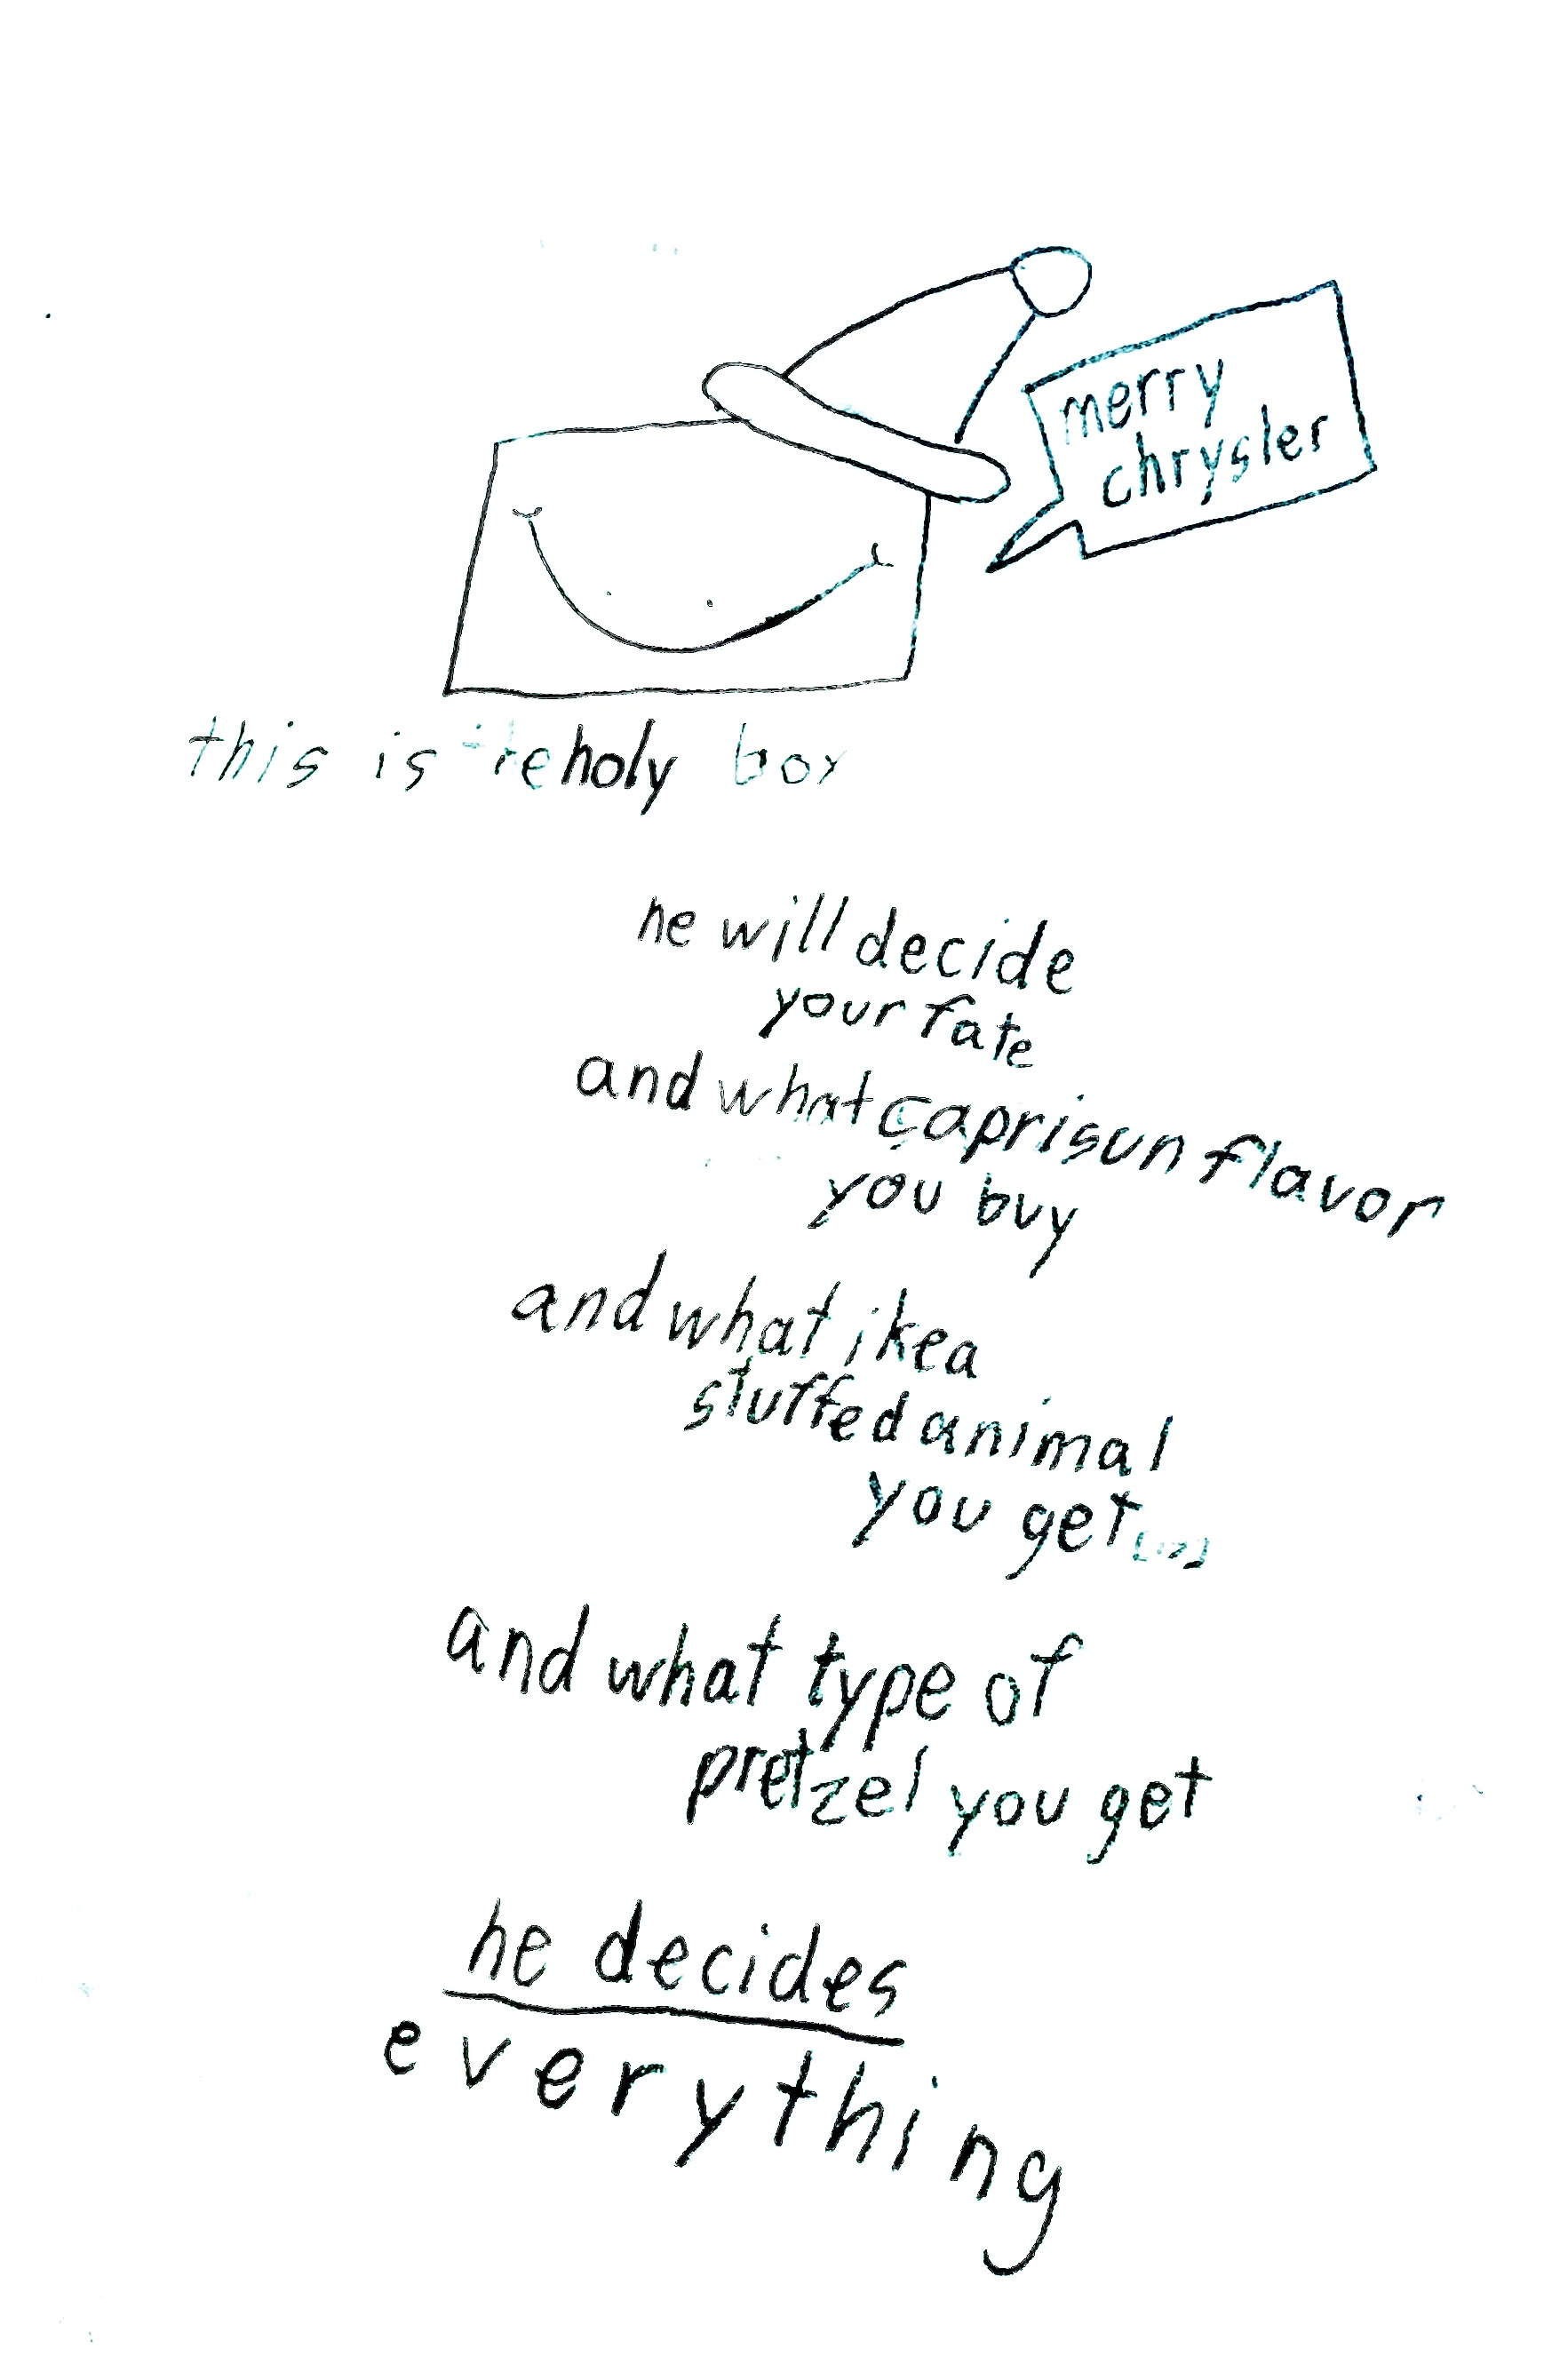 merry
chrysler
this is the holy box
he will decide
your fate
and what caprisun flavor
you buy
and what ikea
stuffed animal
you get
and what type of
pretzel you get
he decides
everything